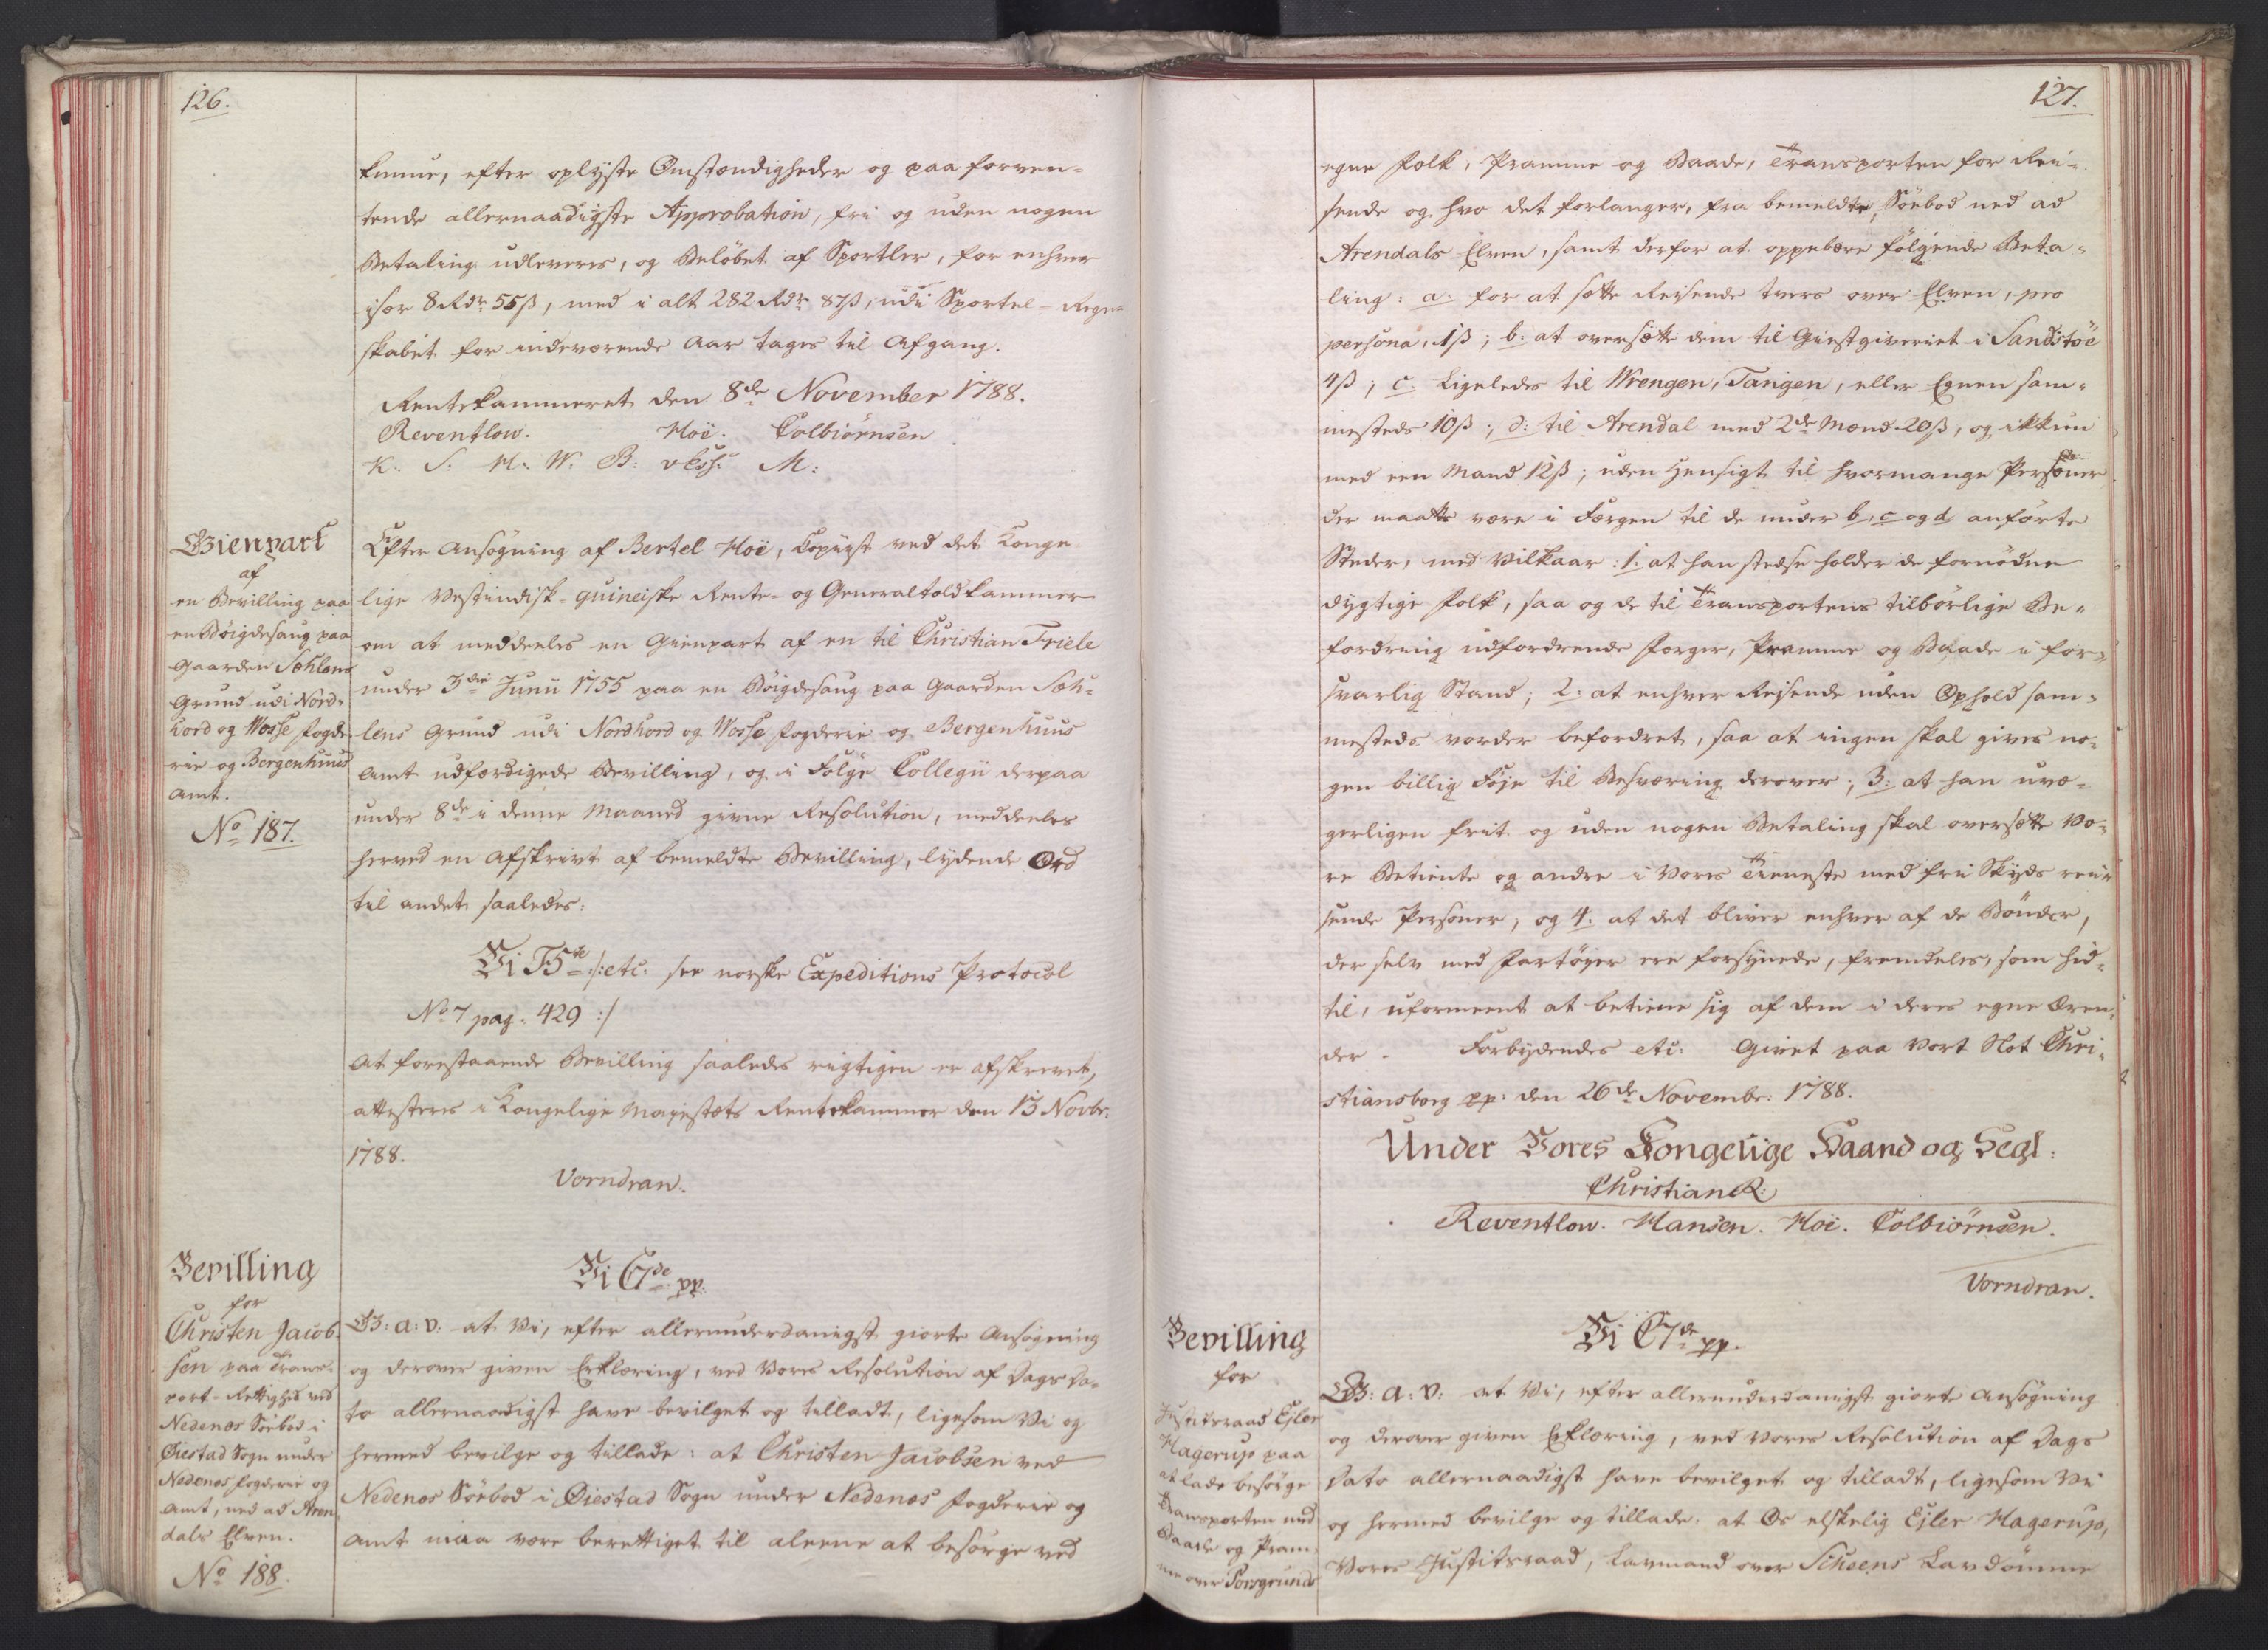 126.
kunne, efter oplyste Omstændigheder og paa forven-
tende allernaadigste Approbation, fri og uden nogen
Betaling udleveres, og Beløbet af Sportler, for enhver
især 8 Rdr. 55 ß, med i alt 282 Rdr. 87 ß, udi Sportel-Regn-
skabet for indeværende Aar tages til Afgang.
Rentekammeret den 8de November 1788.
Reventlow. Hoë. Colbiørnsen.
K. S: H: W: B: M:
Gienpart
af
en Bevilling paa
en Bøigdesaug paa
Gaarden Sæhlens
Grund udi Nord-
hord og Wosse Fogde-
rie og Bergenhuus
Amt.
No 187.
Efter Ansøgning af Bertel Hoë, Copiist ved det Konge-
lige Vestindisk-guineiske Rente- og Generaltoldkammer
om at meddeeles en Gienpart af en til Christian Friele
under 3die Junii 1755 paa en Bøigdesaug paa Gaarden Sæh-
lens Grund udi Nordhord og Wosse Fogderie og Bergenhuus
Amt udfærdigede Bevilling, og i Følge Collegii derpaa
under 8de i denne Maaned givne Resolution, meddeeles
herved en Afskrivt af bemeldte Bevilling, lydende Ord
til andet saaledes:
Vi F 5te /: etc: see norske Expeditions Protocol
No 7 pag. 429 :/
At forestaaende Bevilling saaledes rigtigen er afskrevet,
attesteres i Kongelige Majestæts Rentekammer den 13 Novbr.
1788.
Vorndran.
Bevilling
for
Christen Jacob-
sen paa Trans-
port-Rettighed ved
Nedenæs Søebod i
Øiestad Sogn under
Nedenæs Fogderie og
Amt, ned ad Aren-
dals Elven.
No 188.
Vi C 7de pp.
G: a: v: at Vi, efter allerunderdanigst giorte Ansøgning
og derover given Erklæring, ved Vores Resolution af Dags Da-
to allernaadigst have bevilget og tilladt, ligesom Vi og
hermed bevilge og tillade: at Christen Jacobsen ved
Nedenæs Söebod i Øiestad Sogn under Nedenæs Fogderie og
Amt maa være berettiget til aleene at besørge ved
127.
egne Folk, Pramme og Baade, Transporten for Rei-
sende og hvo det forlanger, fra bemeldte Söebod ned ad
Arendals Elven, samt derfor at oppebære følgende Beta-
ling: a. for at sætte Reisende tvers over Elven, pro
persona, 1 ß; b. at oversætte dem til Giestgiveriet i Sandstøe
4 ß; c. Ligeledes til Wrengen, Tangen, eller Egnen sam-
mesteds 10 ß; d: til Arendal med 2de Mænd 20 ß, og ikkun
med een Mand 12 ß; uden Hensigt til hvormange Personer
der maatte være i Færgen til de under b, c og d anførte
Steder, med Vilkaar: 1. at han stedse holder de fornødne
dygtige Folk, saa og de til Transportens tilbørlige Be-
fordring udfordrende Færger, Pramme og Baade i for-
svarlig Stand; 2: at enhver Reisende uden Ophold sam-
mesteds vorder befordret, saa at ingen skal gives no-
gen billig Føje til Besværing derover; 3: at han uvæ-
gerligen frit og uden nogen Betaling skal oversætte Vo-
re Betiente og andre i Vores Tieneste med fri Skyds rei-
sende Personer; og 4. at det bliver enhver af de Bønder,
der selv med Fartøyer ere forsynede, fremdeles, som hid-
til, uformeent at betiene sig af dem i deres egne Æren-
der. Forbydendes etc: Givet paa Vort Slot Chri-
stiansborg pp: den 26de Novembr: 1788.
Under Vores Kongelige Haand og Segl:
Christian R:
Reventlow. Hansen. Hoë. Colbiørnsen.
Vorndran.
Bevilling
for
Justitsraad Ejler
Hagerup paa
at lade besørge
Transporten med
Baade og Pram-
me over Porsgrunds
Vi C 7de pp.
G: a: v: at Vi, efter allerunderdanigst giorte Ansøgning
og derover given Erklæring, ved Vores Resolution af Dags
Dato allernaadigst have bevilget og tilladt, ligesom Vi
og hermed bevilge og tillade: at Os elskelig Ejler Hagerup,
Vores Justitsraad, Lavmand over Scheens Lavdømme